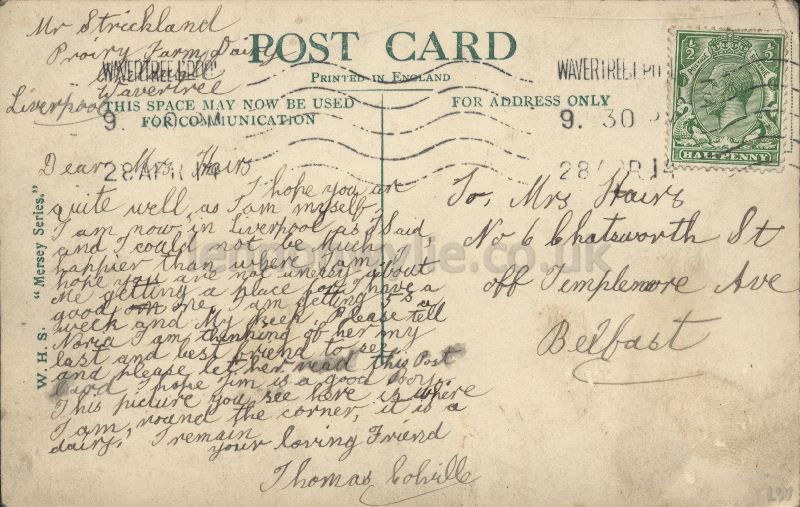 Mr Strickland
Proiry Farm Dairy
Wavertree
Liverpool
POST CARD
PRINTED IN ENGLAND
THIS SPACE MAY NOW BE USED
FOR COMMUNICATION
FOR ADDRESS ONLY
WAVERTREE
9. PM
28 AP 14
WAVERTREE
9. 30 P
28 AP 14
HALFPENNY
W.H.S. "Mersey Series."
Dear Mrs Hairs
I hope you are
quite well as I am myself
I am now in Liverpool as I said
and I could not be Much
happier than where I am, I
hope you are not uneasy about
Me getting a place for I have a
good one, I am getting 5s a
week and My Keep, Please tell
Noria I am thinking of her my
last and best friend to see,
and please let her read this Post
Card I hope Jim is a good Boy.
This picture you see here is where
I am, round the corner, it is a
dairy, I remain
your loving Friend
Thomas Colville
To, Mrs Hairs
No 6 Chatsworth St
off Templemore Ave
Belfast